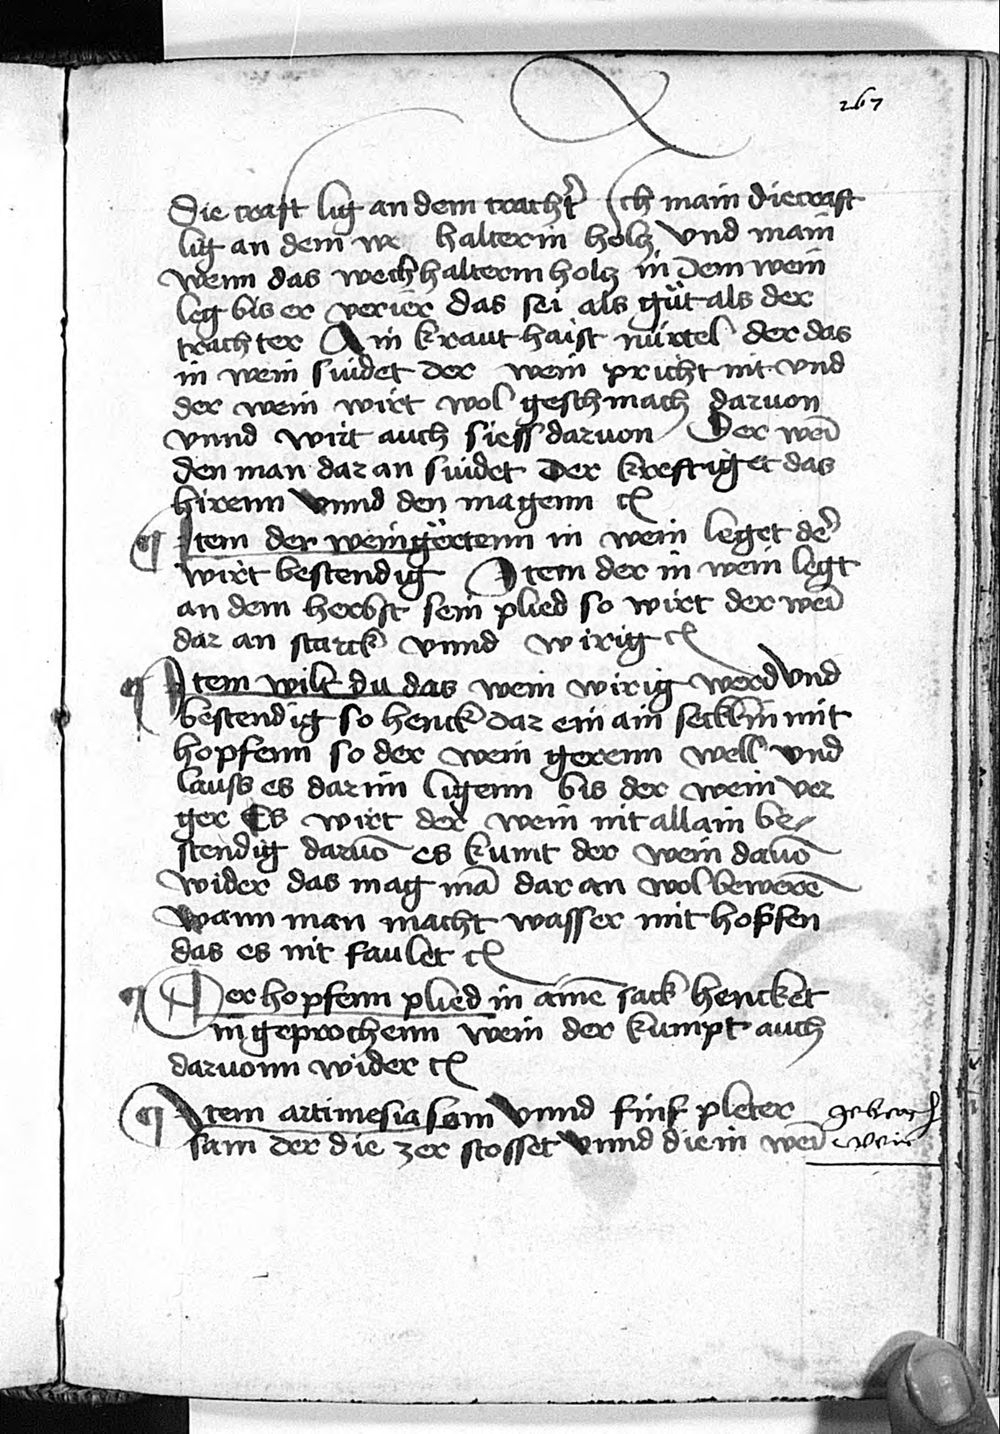 267
Die craft lig an dem tracht̾ Ich main die craft
lig an dem we halterin holtz Vnd main
wenn das wechhalterin holtz in dem wein
leg bis er verier das sei als gůt als der
trachter Ain kraut haist mirtel der das
in wein suidet der wein pricht nit vnd
der wein wirt wol geschmach daruon
vnnd wirt auch siess daruon Der wei᷑
den man dar an suidet Der kreftiget das
hirenn Vnnd den magenn ꝛc
¶ Item der weingertenn in wein leget de᷑
wirt bestendig Item der in wein legt
an dem herbst sein plied so wirt der wei᷑
dar an starck vnnd wirig ꝛc
¶ Item wilt du das wein wirig werd Vnd
bestendig so henck dar ein ain secklin mit
hopfenn so der wein gerenn well vnd
lauss es darin ligenn bis der wein ver
ger Es wirt der wein nit allain be⸗
stendig daruō es kumt der wein dauō
wider das mag mā dar an wol bewerē
wann man macht wasser mit hopfen
das es nit faulet ꝛc
¶ Der hopfenn plied in aine᷑ sack hencket
in geprochenn wein der kumpt auch
daruonn wider ꝛc
¶ Item artimesia sam Vnnd finf pleter
sam der die zer stosset vnnd die in wei᷑
wein